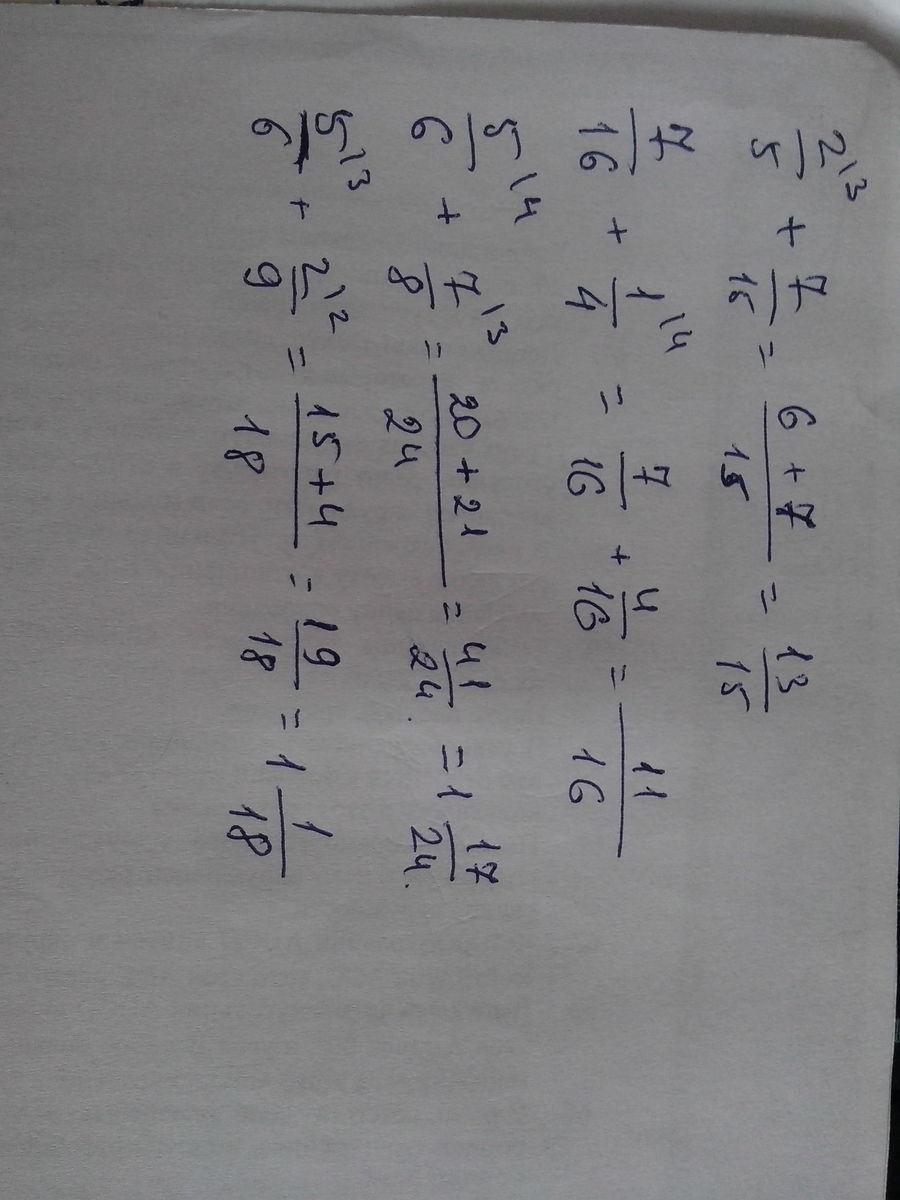 2\3/5 + 7/15 = 6+7/15 = 13/15
7/16 + 1\4/4 = 7/16 + 4/16 = 11/16
5\4/6 + 7\3/8 = 20+21/24 = 41/24. = 1 17/24.
5\3/6 + 2\2/9 = 15+4/18 = 19/18 = 1 1/18